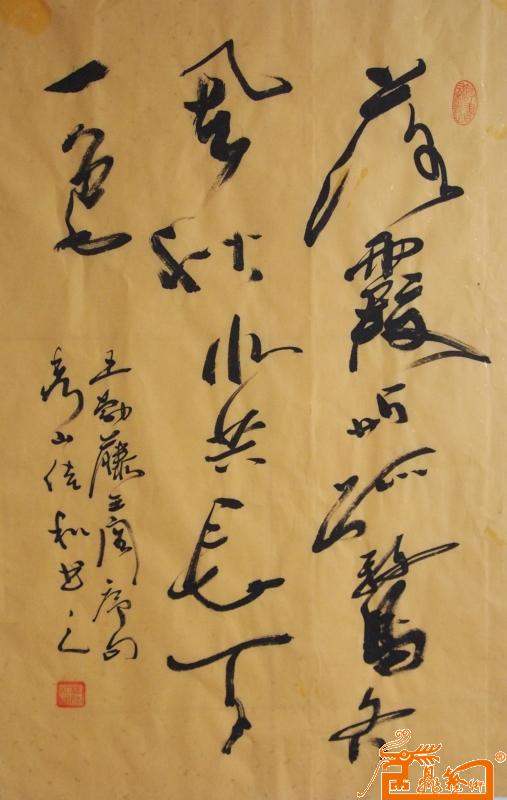 落霞与孤鹜齐
飞秋水共长天
一色
王勃藤王阁序句
山佳和书之